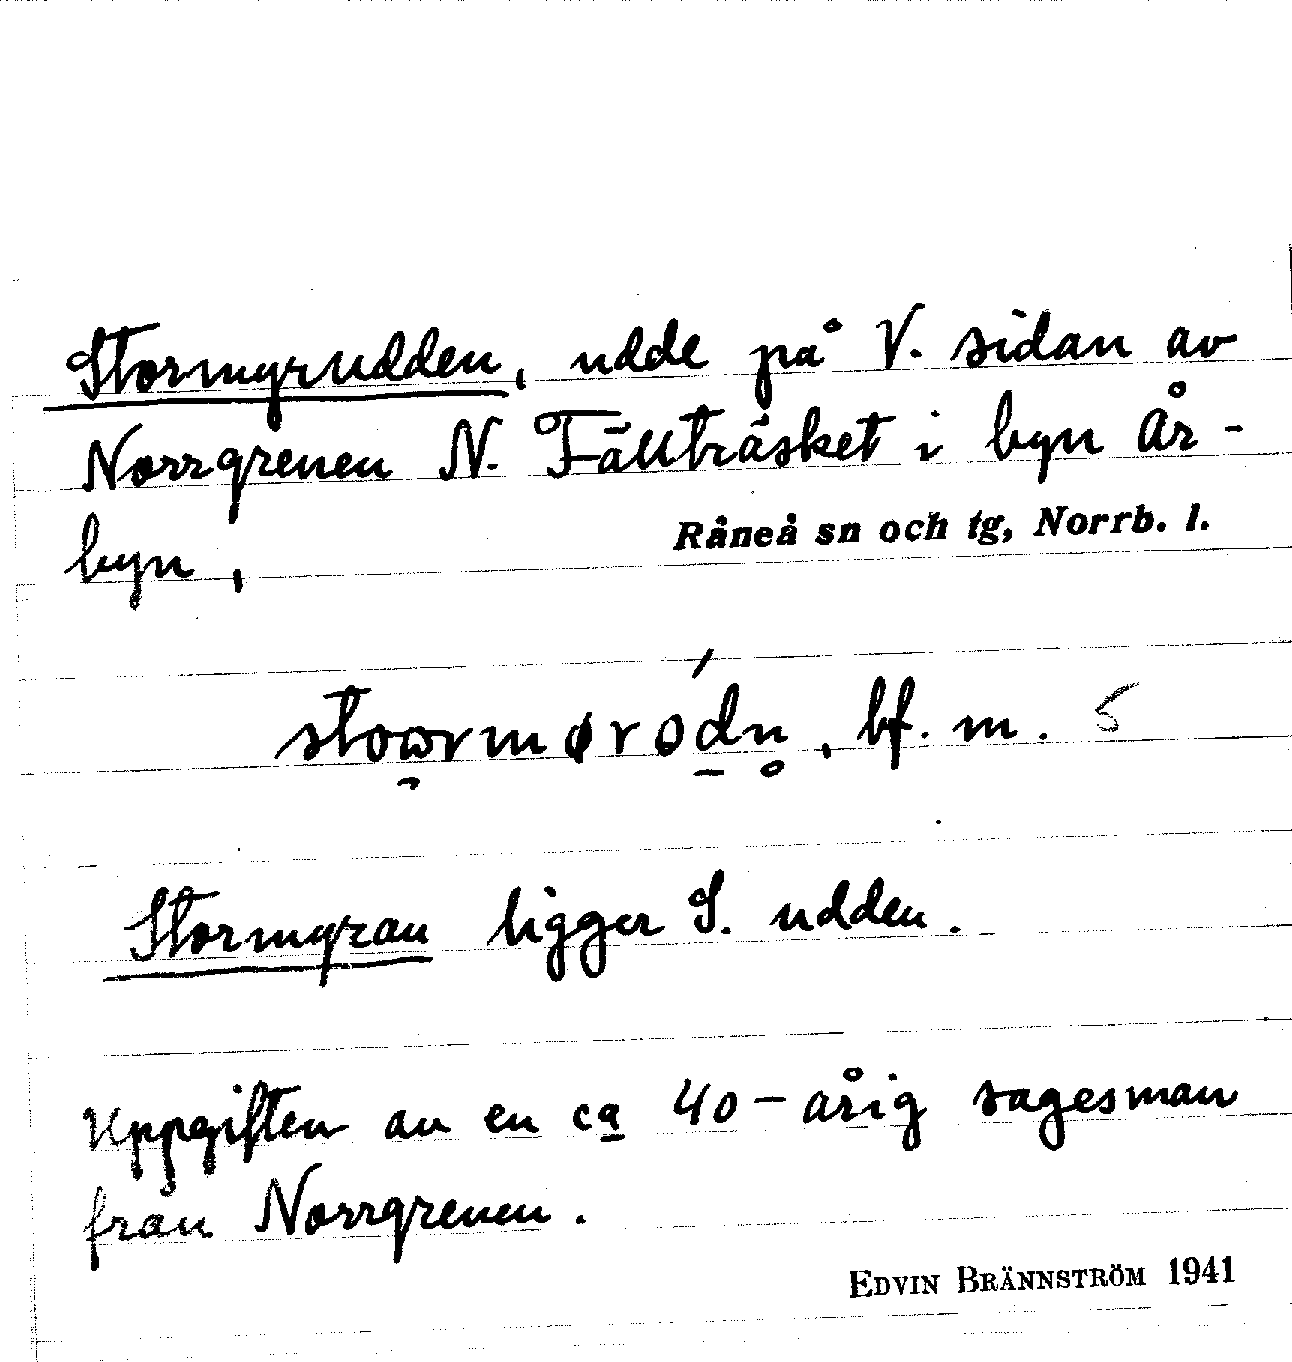 Stormyrudden, udde på V. sidan av
Norrgrenen N. Fällträsket i byn År-
byn,
Råneå sn och tg, Norrb. l.
stoωrmørodn, bf. m. 5
Stormyran ligger S. udden.
Uppgiften av en ca 40-årig sagesman
från Norrgrenen.
EDVIN BRÄNNSTRÖM 1941